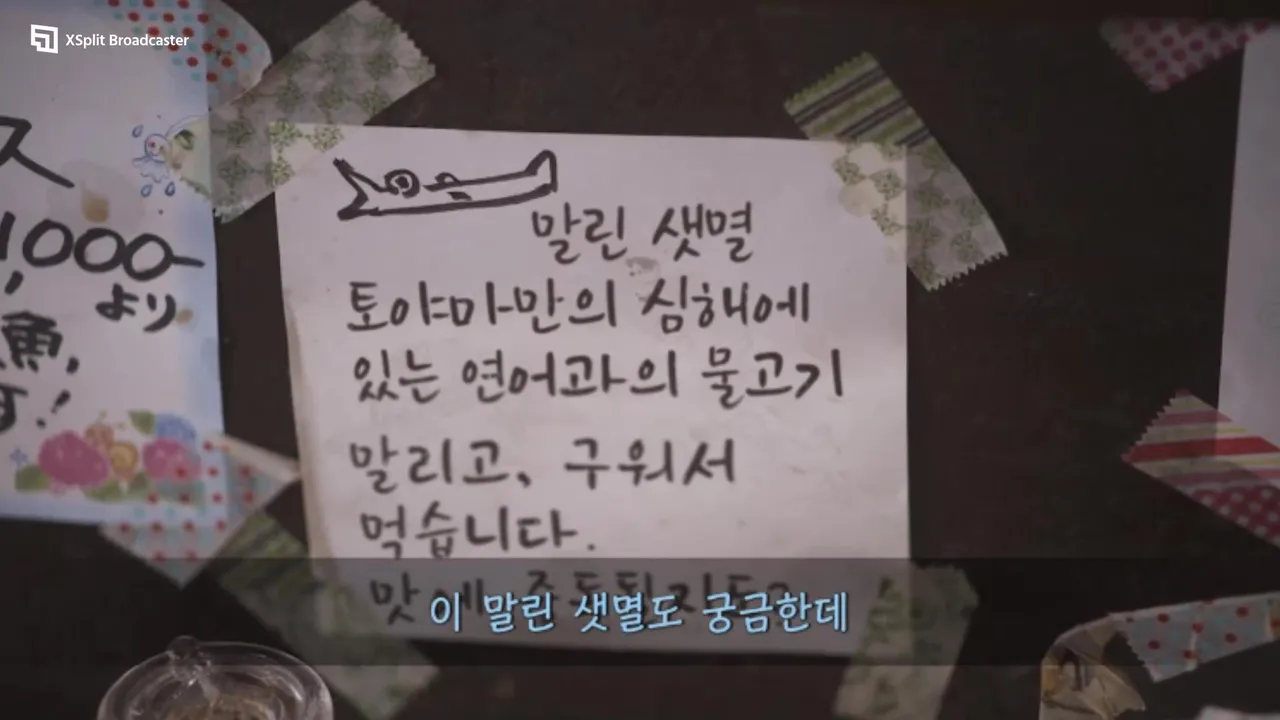 XSplit Broadcaster
ス
1000-
より
魚,
す!
말린 샛멸
토야마만의 심해에
있는 연어과의 물고기
말리고, 구워서
먹습니다.
맛에
이 말린 샛멸도 궁금한데